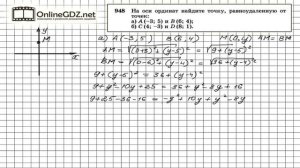 OnlineGDZ.net
948 На оси ординат найдите точку, равноудаленную от
точек:
а) A(–3; 5) и B(6; 4);
б) C(4; –3) и D(8; 1).
а) A(-3; 5) B(6; 4) M(0; y) AM = BM
AM = √(0+3)² + (y-5)² = √9 + (y-5)²
BM = √(0-6)² + (y-4)² = √36 + (y-4)²
9 + (y-5)² = 36 + (y-4)²
9 + y² - 10y + 25 = 36 + y² - 8y + 16
9 + 25 - 36 - 16 = -y² + 10y + y² - 8y
y
M
x